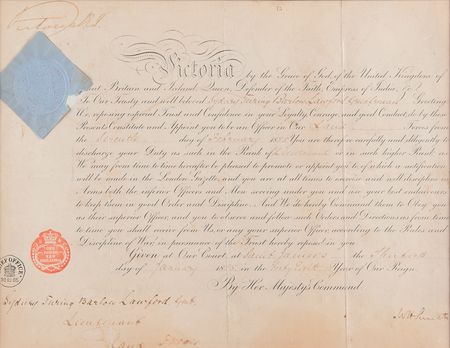 Victoria R.I.
Victoria by the Grace of God of the United Kingdom of
Great Britain and Ireland, Queen, Defender of the Faith, Empress of India, &c.
To Our Trusty and well beloved Sydney Turing Barlow Lawford Gentleman Greeting
We, reposing especial Trust and Confidence in your Loyalty, Courage, and good Conduct, do by these
Presents Constitute and Appoint you to be an Officer in Our Land Forces from
the day of February 1885 You are therefore carefully and diligently to
discharge your Duty as such in the Rank of Lieutenant or in such higher Rank as
We may from time to time hereafter be pleased to promote or appoint you to, of which a notification
will be made in the London Gazette, and you are at all times to exercise and well discipline in
Arms both the inferior Officers and Men serving under you and use your best endeavours
to keep them in good Order and Discipline. And We do hereby Command them to Obey you
as their superior Officer, and you to observe and follow such Orders and Directions as from time
to time you shall receive from Us, or any your superior Officer, according to the Rules and
Discipline of War, in pursuance of the Trust hereby reposed in you.
Given at Our Court, at Saint James's the
day of January 1885 in the Forty Eighth Year of Our Reign.
By Her Majesty's Command
Sydney Turing Barlow Lawford Gent.
Lieutenant
Land Forces